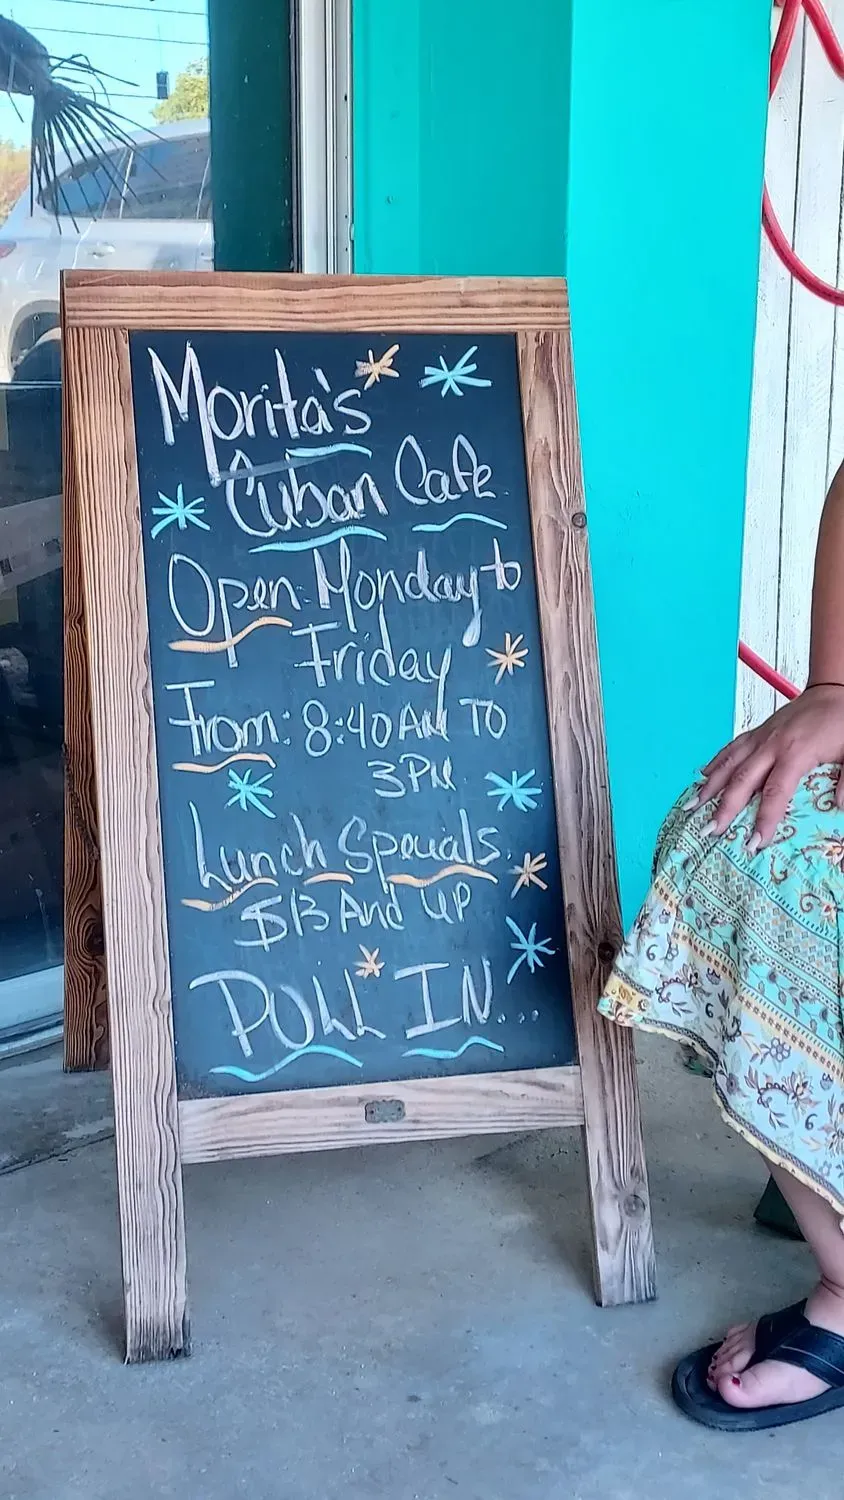 Morita's
Cuban Cafe
Open: Monday to
Friday
From: 8:40 AM TO
3PM
Lunch Specials
$13 And UP
PULL IN...